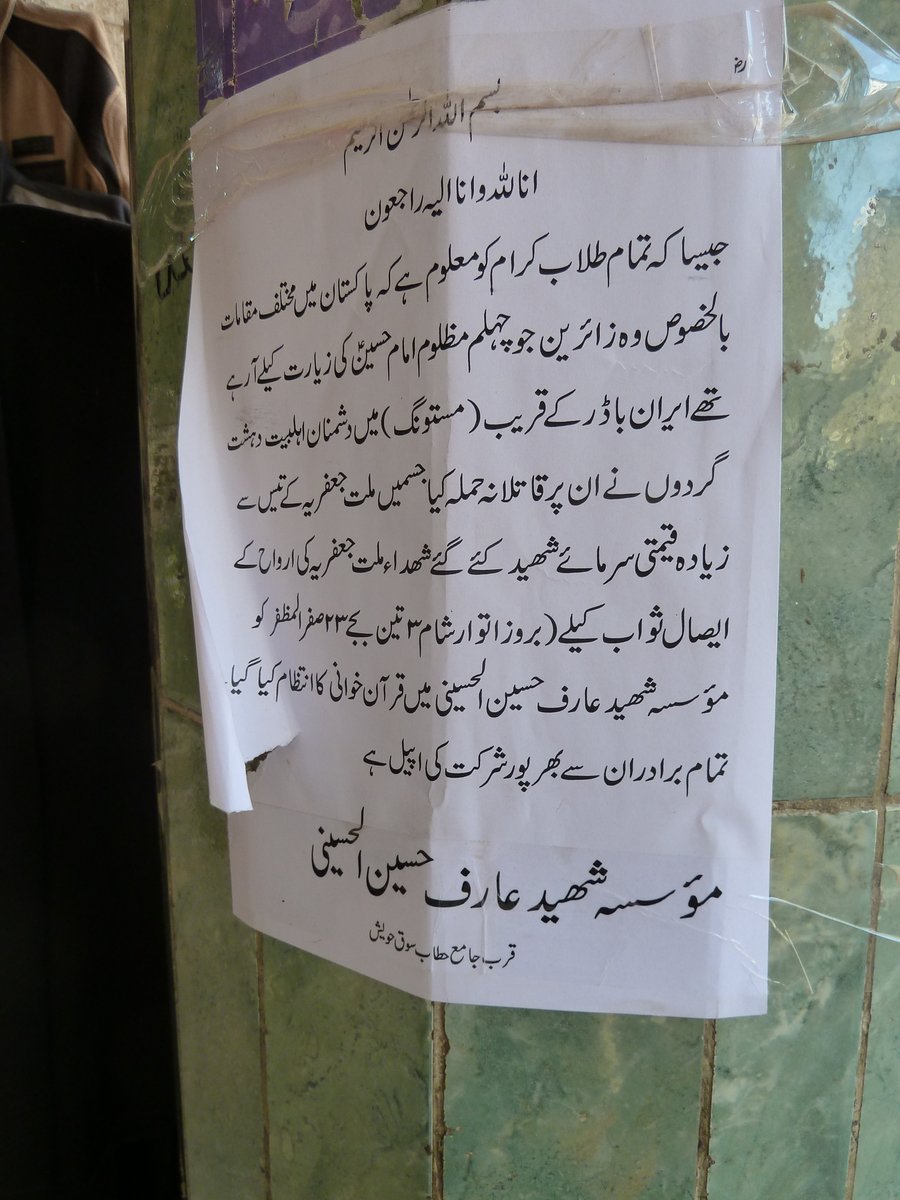 بسم اللہ الرحمٰن الرحیم
انا للہ وانا الیہ راجعون
جیسا کہ تمام طلاب کرام کو معلوم ہے کہ پاکستان میں مختلف مقامات
بالخصوص وہ زائرین جو چہلم مظلوم امام حسینؑ کی زیارت کیلے آرہے
تھے ایران باڈر کے قریب (مستونگ) میں دشمنان اہلبیت دہشت
گردوں نے ان پر قاتلانہ حملہ کیا جسمیں ملت جعفریہ کے تیس سے
زیادہ قیمتی سرمائے شھید کئے گئے شھداء ملت جعفریہ کی ارواح کے
ایصال ثواب کیلے (بروز اتوار شام ۳ تین بجے ۲۳ صفر المظفر کو
مؤسسہ شھید عارف حسین الحسینی میں قرآن خوانی کا انتظام کیا گیا۔
تمام برادران سے بھرپور شرکت کی اپیل ہے
مؤسسہ شھید عارف حسین الحسینی
قرب جامع حطاب سوق حویش